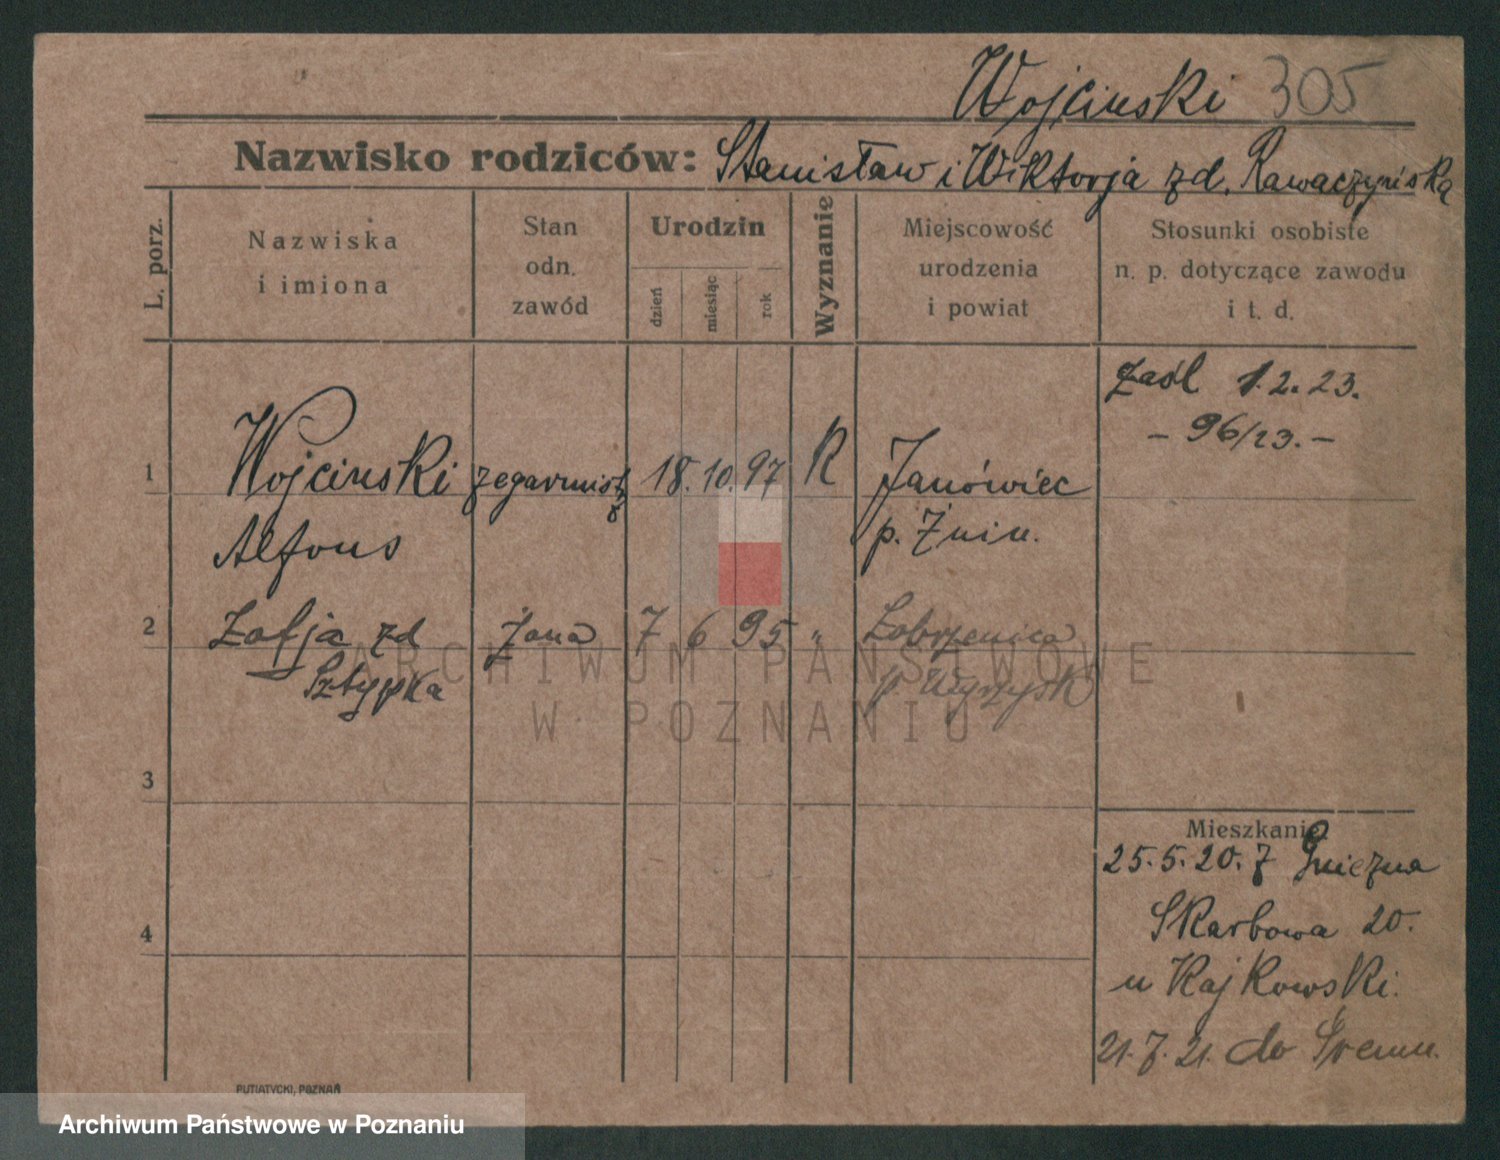 Wojcinski 305
Nazwisko rodziców: Stanisław i Wiktorja zd. Rawaczyńska
L. porz.
Nazwiska
i imiona
Stan
odn.
zawód
Urodzin
dzień
miesiąc
rok
Wyznanie
Miejscowość
urodzenia
i powiat
Stosunki osobiste
n. p. dotyczące zawodu
i t. d.
zaśl 1.2.23.
- 96/23. -
1 Wojcinski zegarmistrz 18. 10. 97 R Janówiec
Alfons p. Żnin.
2 Zofja zd żona 7 6 95 " Łobrzenica
Sztypka p Wyrzysk
3
4
Mieszkanie
25.5.20. z Gniezna
Skarbowa 20.
u Kajkowski.
21.7.21. do Śremu.
PUTIATYCKI, POZNAŃ
ARCHIWUM PAŃSTWOWE
W POZNANIU
Archiwum Państwowe w Poznaniu